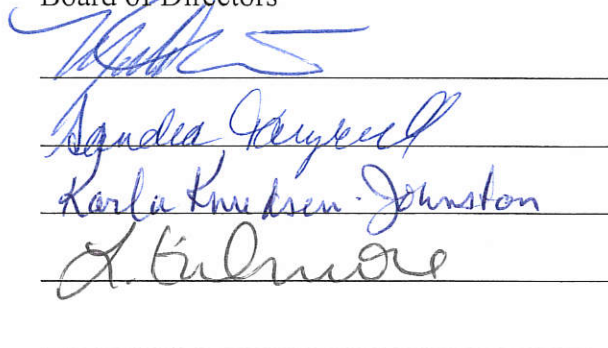 Board of Directors
Sandra
Karla Knudsen-Johnston
L. Gilmore